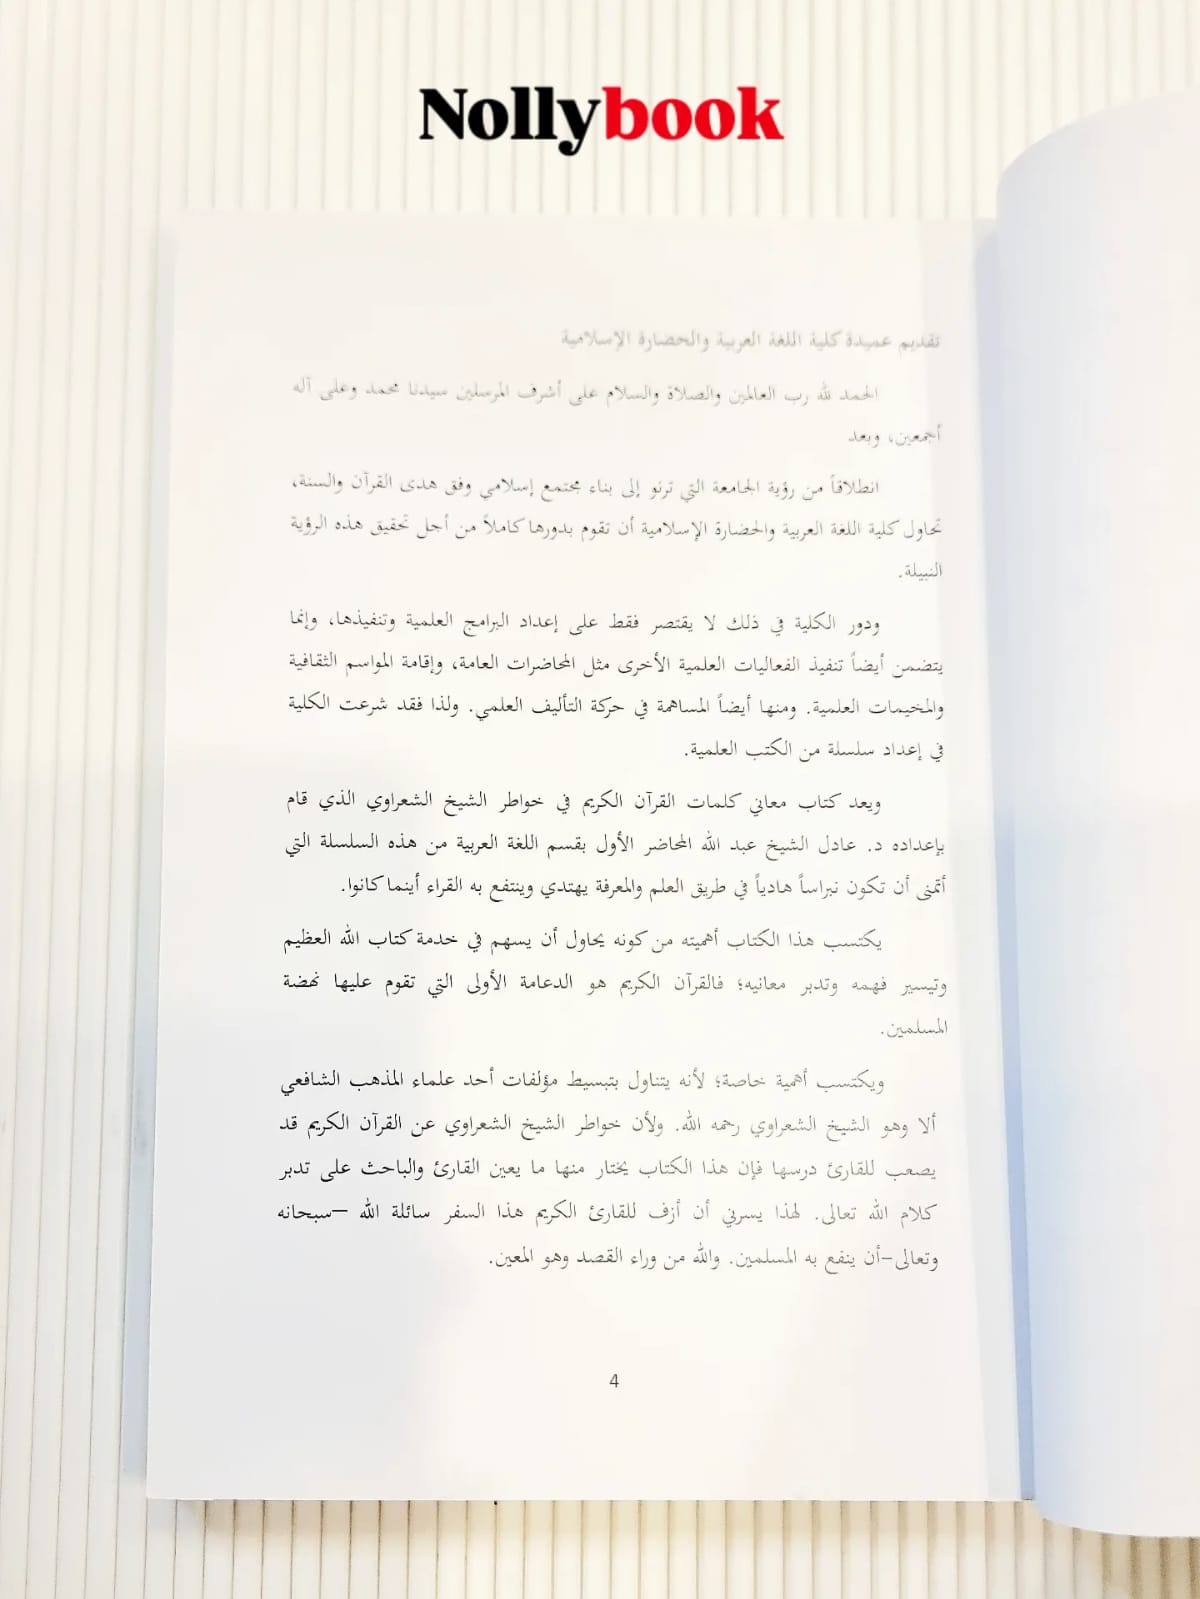 Nollybook
تقديم عميدة كلية اللغة العربية والحضارة الإسلامية
الحمد لله رب العالمين والصلاة والسلام على أشرف المرسلين سيدنا محمد وعلى آله
أجمعين، وبعد
انطلاقاً من رؤية الجامعة التي ترنو إلى بناء مجتمع إسلامي وفق هدى القرآن والسنة،
تحاول كلية اللغة العربية والحضارة الإسلامية أن تقوم بدورها كاملاً من أجل تحقيق هذه الرؤية
النبيلة.
ودور الكلية في ذلك لا يقتصر فقط على إعداد البرامج العلمية وتنفيذها، وإنما
يتضمن أيضاً تنفيذ الفعاليات العلمية الأخرى مثل المحاضرات العامة، وإقامة المواسم الثقافية
والمخيمات العلمية. ومنها أيضاً المساهمة في حركة التأليف العلمي. ولذا فقد شرعت الكلية
في إعداد سلسلة من الكتب العلمية.
ويعد كتاب معاني كلمات القرآن الكريم في خواطر الشيخ الشعراوي الذي قام
بإعداده د. عادل الشيخ عبد الله المحاضر الأول بقسم اللغة العربية من هذه السلسلة التي
أتمنى أن تكون نبراساً هادياً في طريق العلم والمعرفة يهتدي وينتفع به القراء أينما كانوا.
يكتسب هذا الكتاب أهميته من كونه يحاول أن يسهم في خدمة كتاب الله العظيم
وتيسير فهمه وتدبر معانيه؛ فالقرآن الكريم هو الدعامة الأولى التي تقوم عليها نهضة
المسلمين.
ويكتسب أهمية خاصة؛ لأنه يتناول بتبسيط مؤلفات أحد علماء المذهب الشافعي
ألا وهو الشيخ الشعراوي رحمه الله. ولأن خواطر الشيخ الشعراوي عن القرآن الكريم قد
يصعب للقارئ درسها فإن هذا الكتاب يختار منها ما يعين القارئ والباحث على تدبر
كلام الله تعالى. لهذا يسرني أن أزف للقارئ الكريم هذا السفر سائلة الله –سبحانه
وتعالى–أن ينفع به المسلمين. والله من وراء القصد وهو المعين.
4